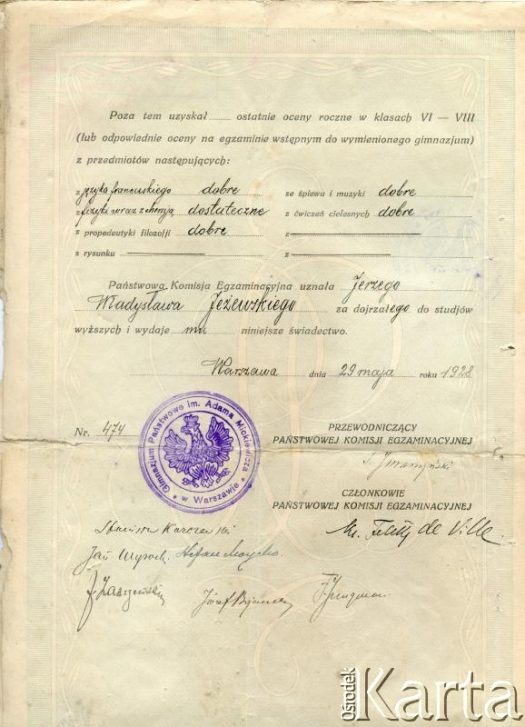 Poza tem uzyskał ostatnie oceny roczne w klasach VI — VIII
(lub odpowiednie oceny na egzaminie wstępnym do wymienionego gimnazjum)
z przedmiotów następujących:
z języka francuskiego dobre ze śpiewu i muzyki dobre
z fizyki wraz z chemją dostateczne z ćwiczeń cielesnych dobre
z propedeutyki filozofji dobre z
z rysunku z
Państwowa Komisja Egzaminacyjna uznała Jerzego
Władysława Jeżewskiego za dojrzałego do studjów
wyższych i wydaje mu niniejsze świadectwo.
Warszawa dnia 29 maja roku 1928
Nr. 474
Gimnazjum Państwowe im. Adama Mickiewicza
w Warszawie
PRZEWODNICZĄCY
PAŃSTWOWEJ KOMISJI EGZAMINACYJNEJ
CZŁONKOWIE
PAŃSTWOWEJ KOMISJI EGZAMINACYJNEJ
Ks. de Ville.
Jan
Józef
ośrodek Karta